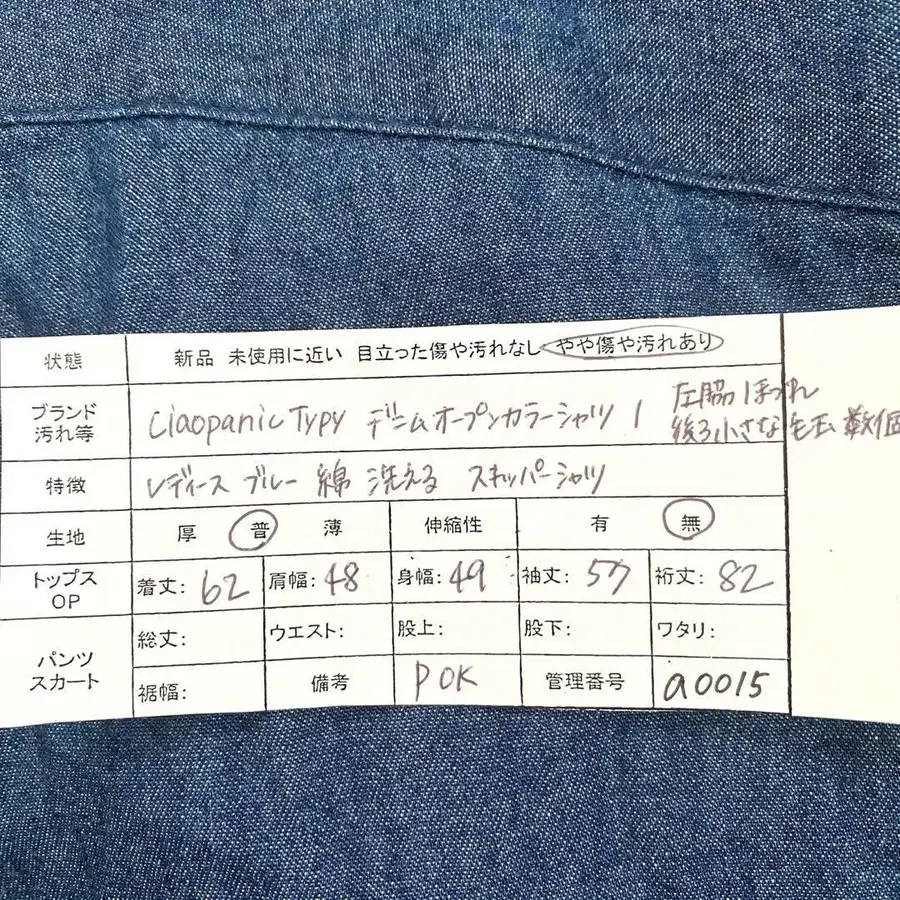 状態 新品 未使用に近い 目立った傷や汚れなし やや傷や汚れあり
ブランド 汚れ等 Ciaopanic Typy デニムオープンカラーシャツ 1 左脇ほつれ
後ろ小さな毛玉数個
特徴 レディース ブルー 綿 洗える スキッパーシャツ
生地 厚 普 薄 伸縮性 有 無
トップス OP 着丈: 62 肩幅: 48 身幅: 49 袖丈: 57 裄丈: 82
パンツ スカート 総丈: ウエスト: 股上: 股下: ワタリ:
裾幅: 備考 P OK 管理番号 a0015